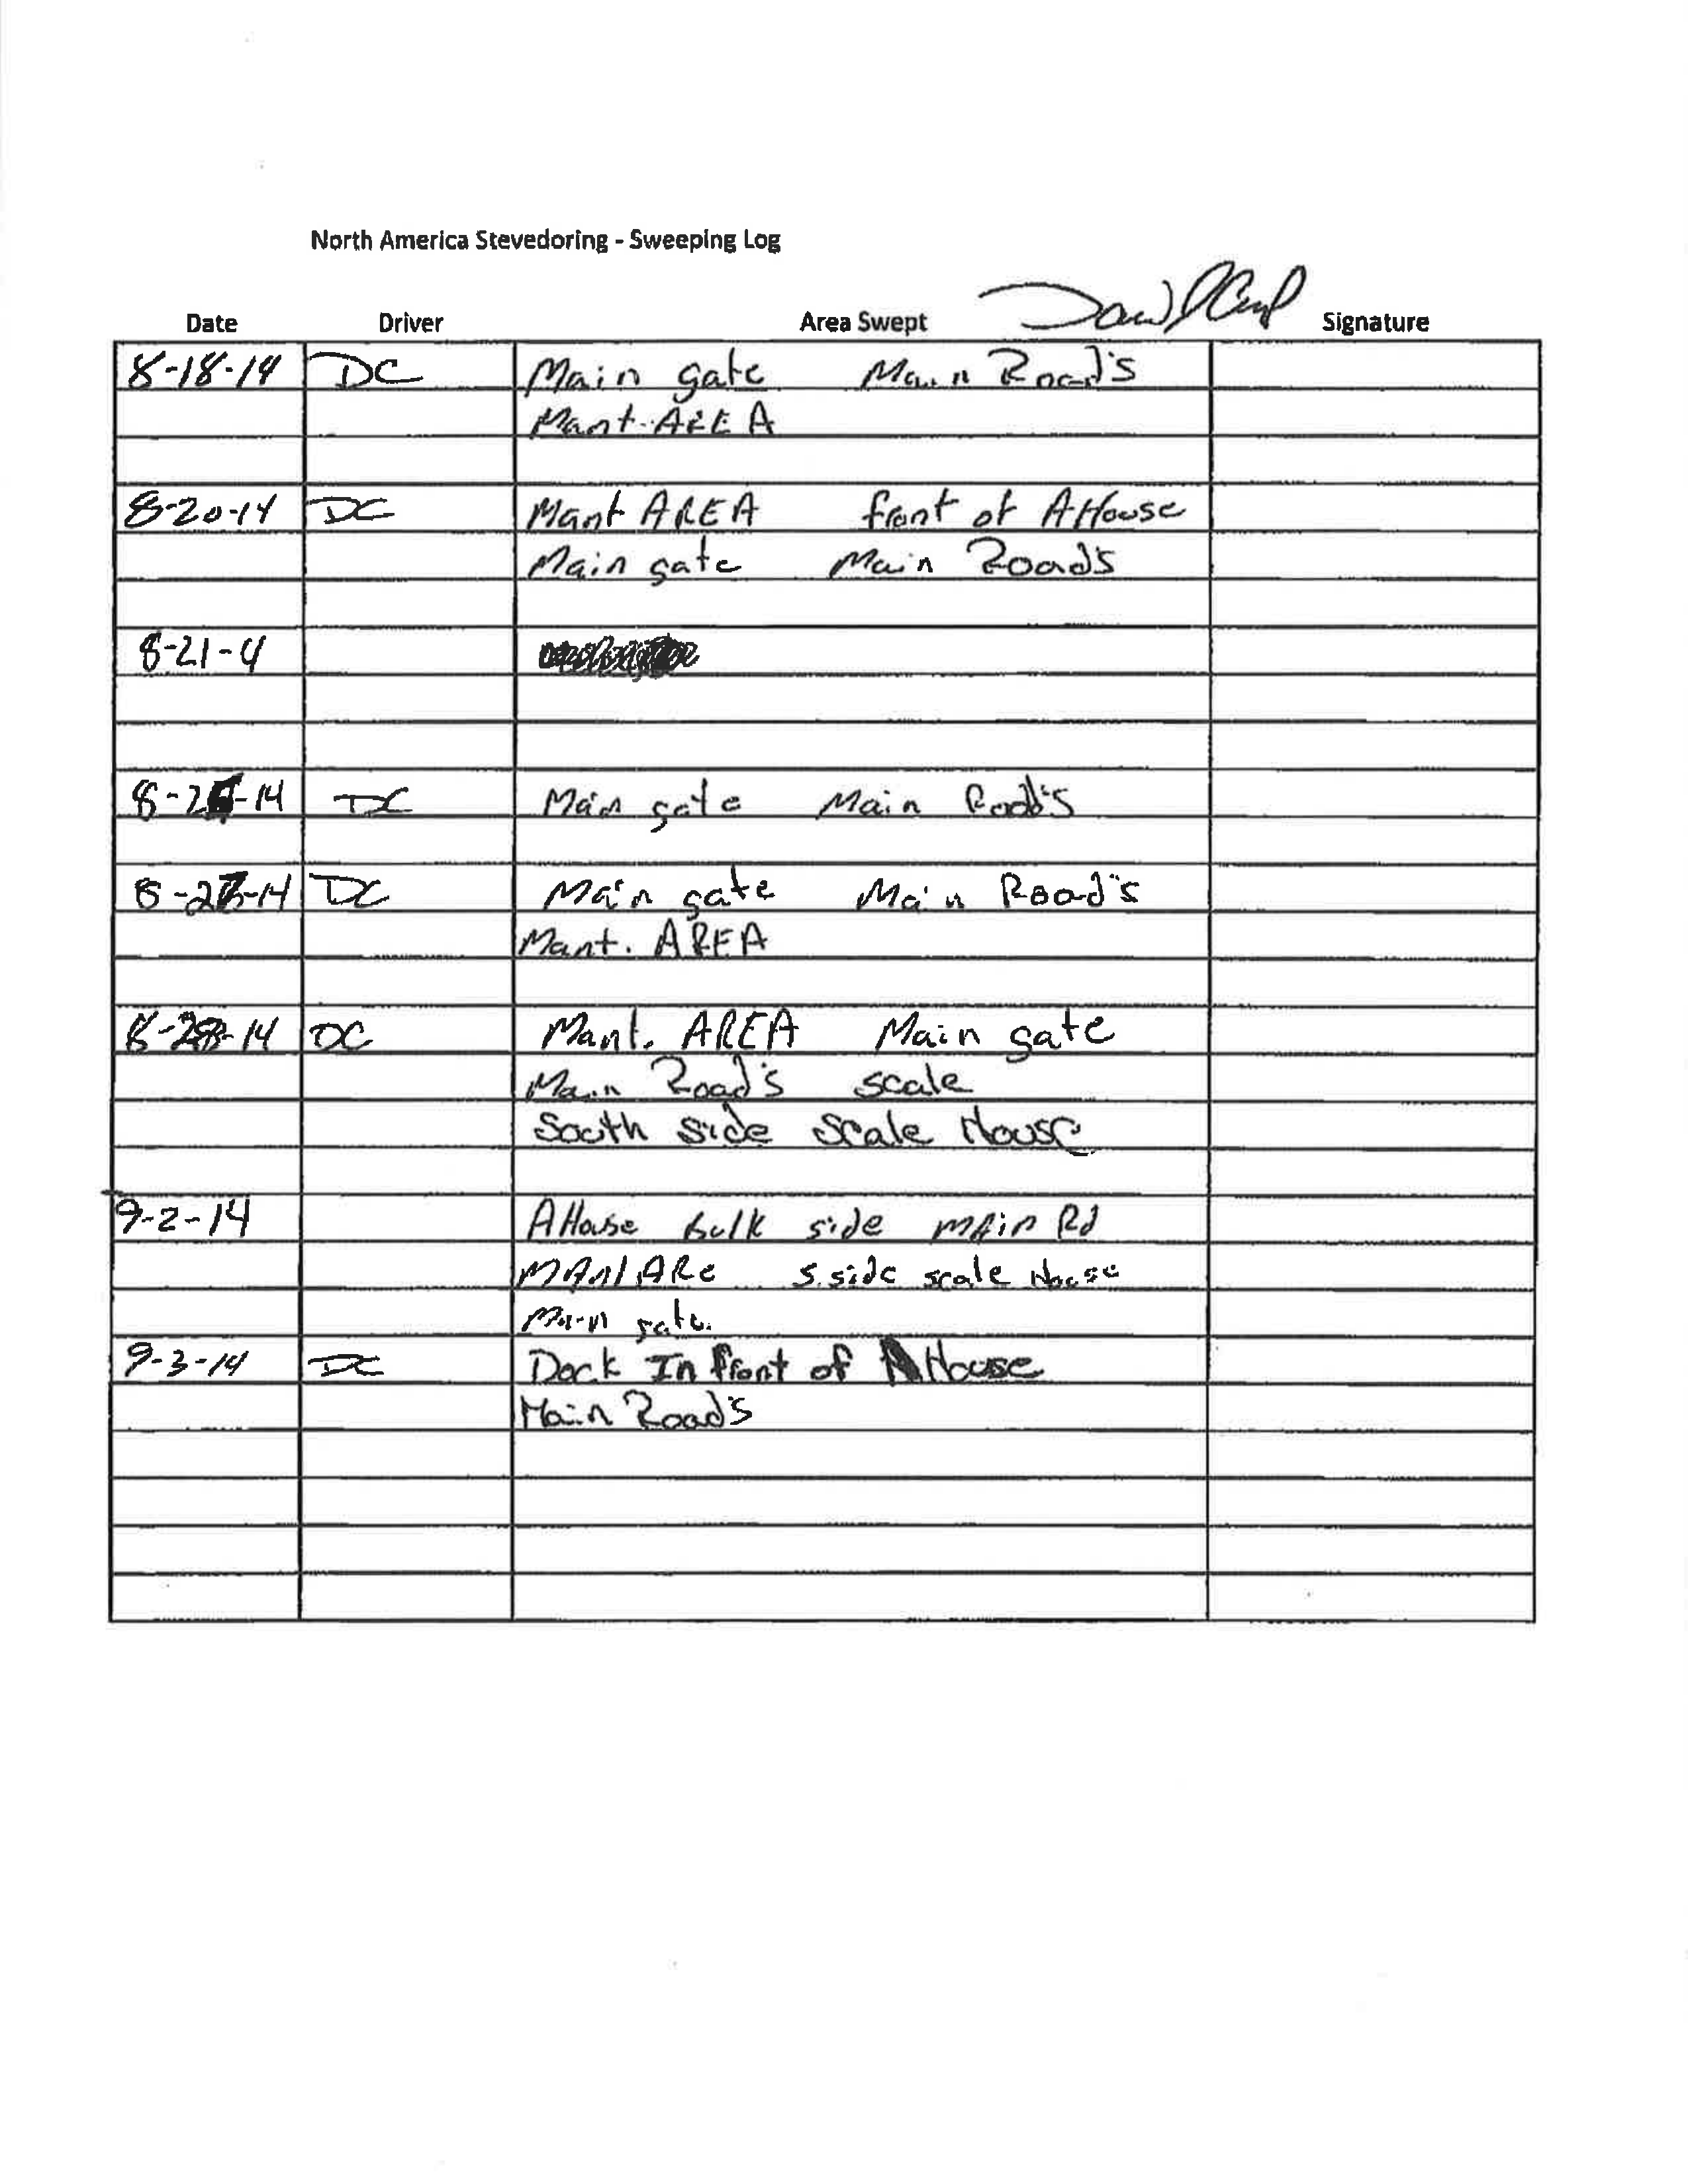 North America Stevedoring - Sweeping Log
Date Driver Area Swept Signature
8-18-14 DC Main gate Main Road's
Mant. AREA
8-20-14 DC Mant AREA front of AHouse
Main gate Main Roads
8-21-4
8-2 -14 DC Main gate Main Road's
8-27-14 DC Main gate Main Road's
Mant. AREA
8-28-14 DC Mant. AREA Main gate
Main Road's scale
South side scale House
9-2-14 AHouse Bulk side main Rd
MANT ARe s.side scale House
Main gate
9-3-14 DC Dock In front of AHouse
Main Road's